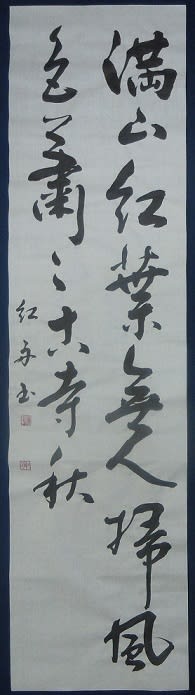 満山紅葉無人掃風
色蕭々古寺秋
紅舟書